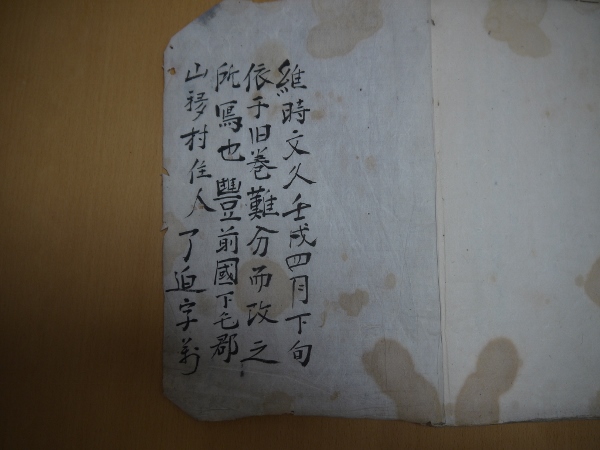 維時文久壬戌四月下旬
依于旧巻難分而改之
所寫也豐前國下毛郡
山移村住人了迫字